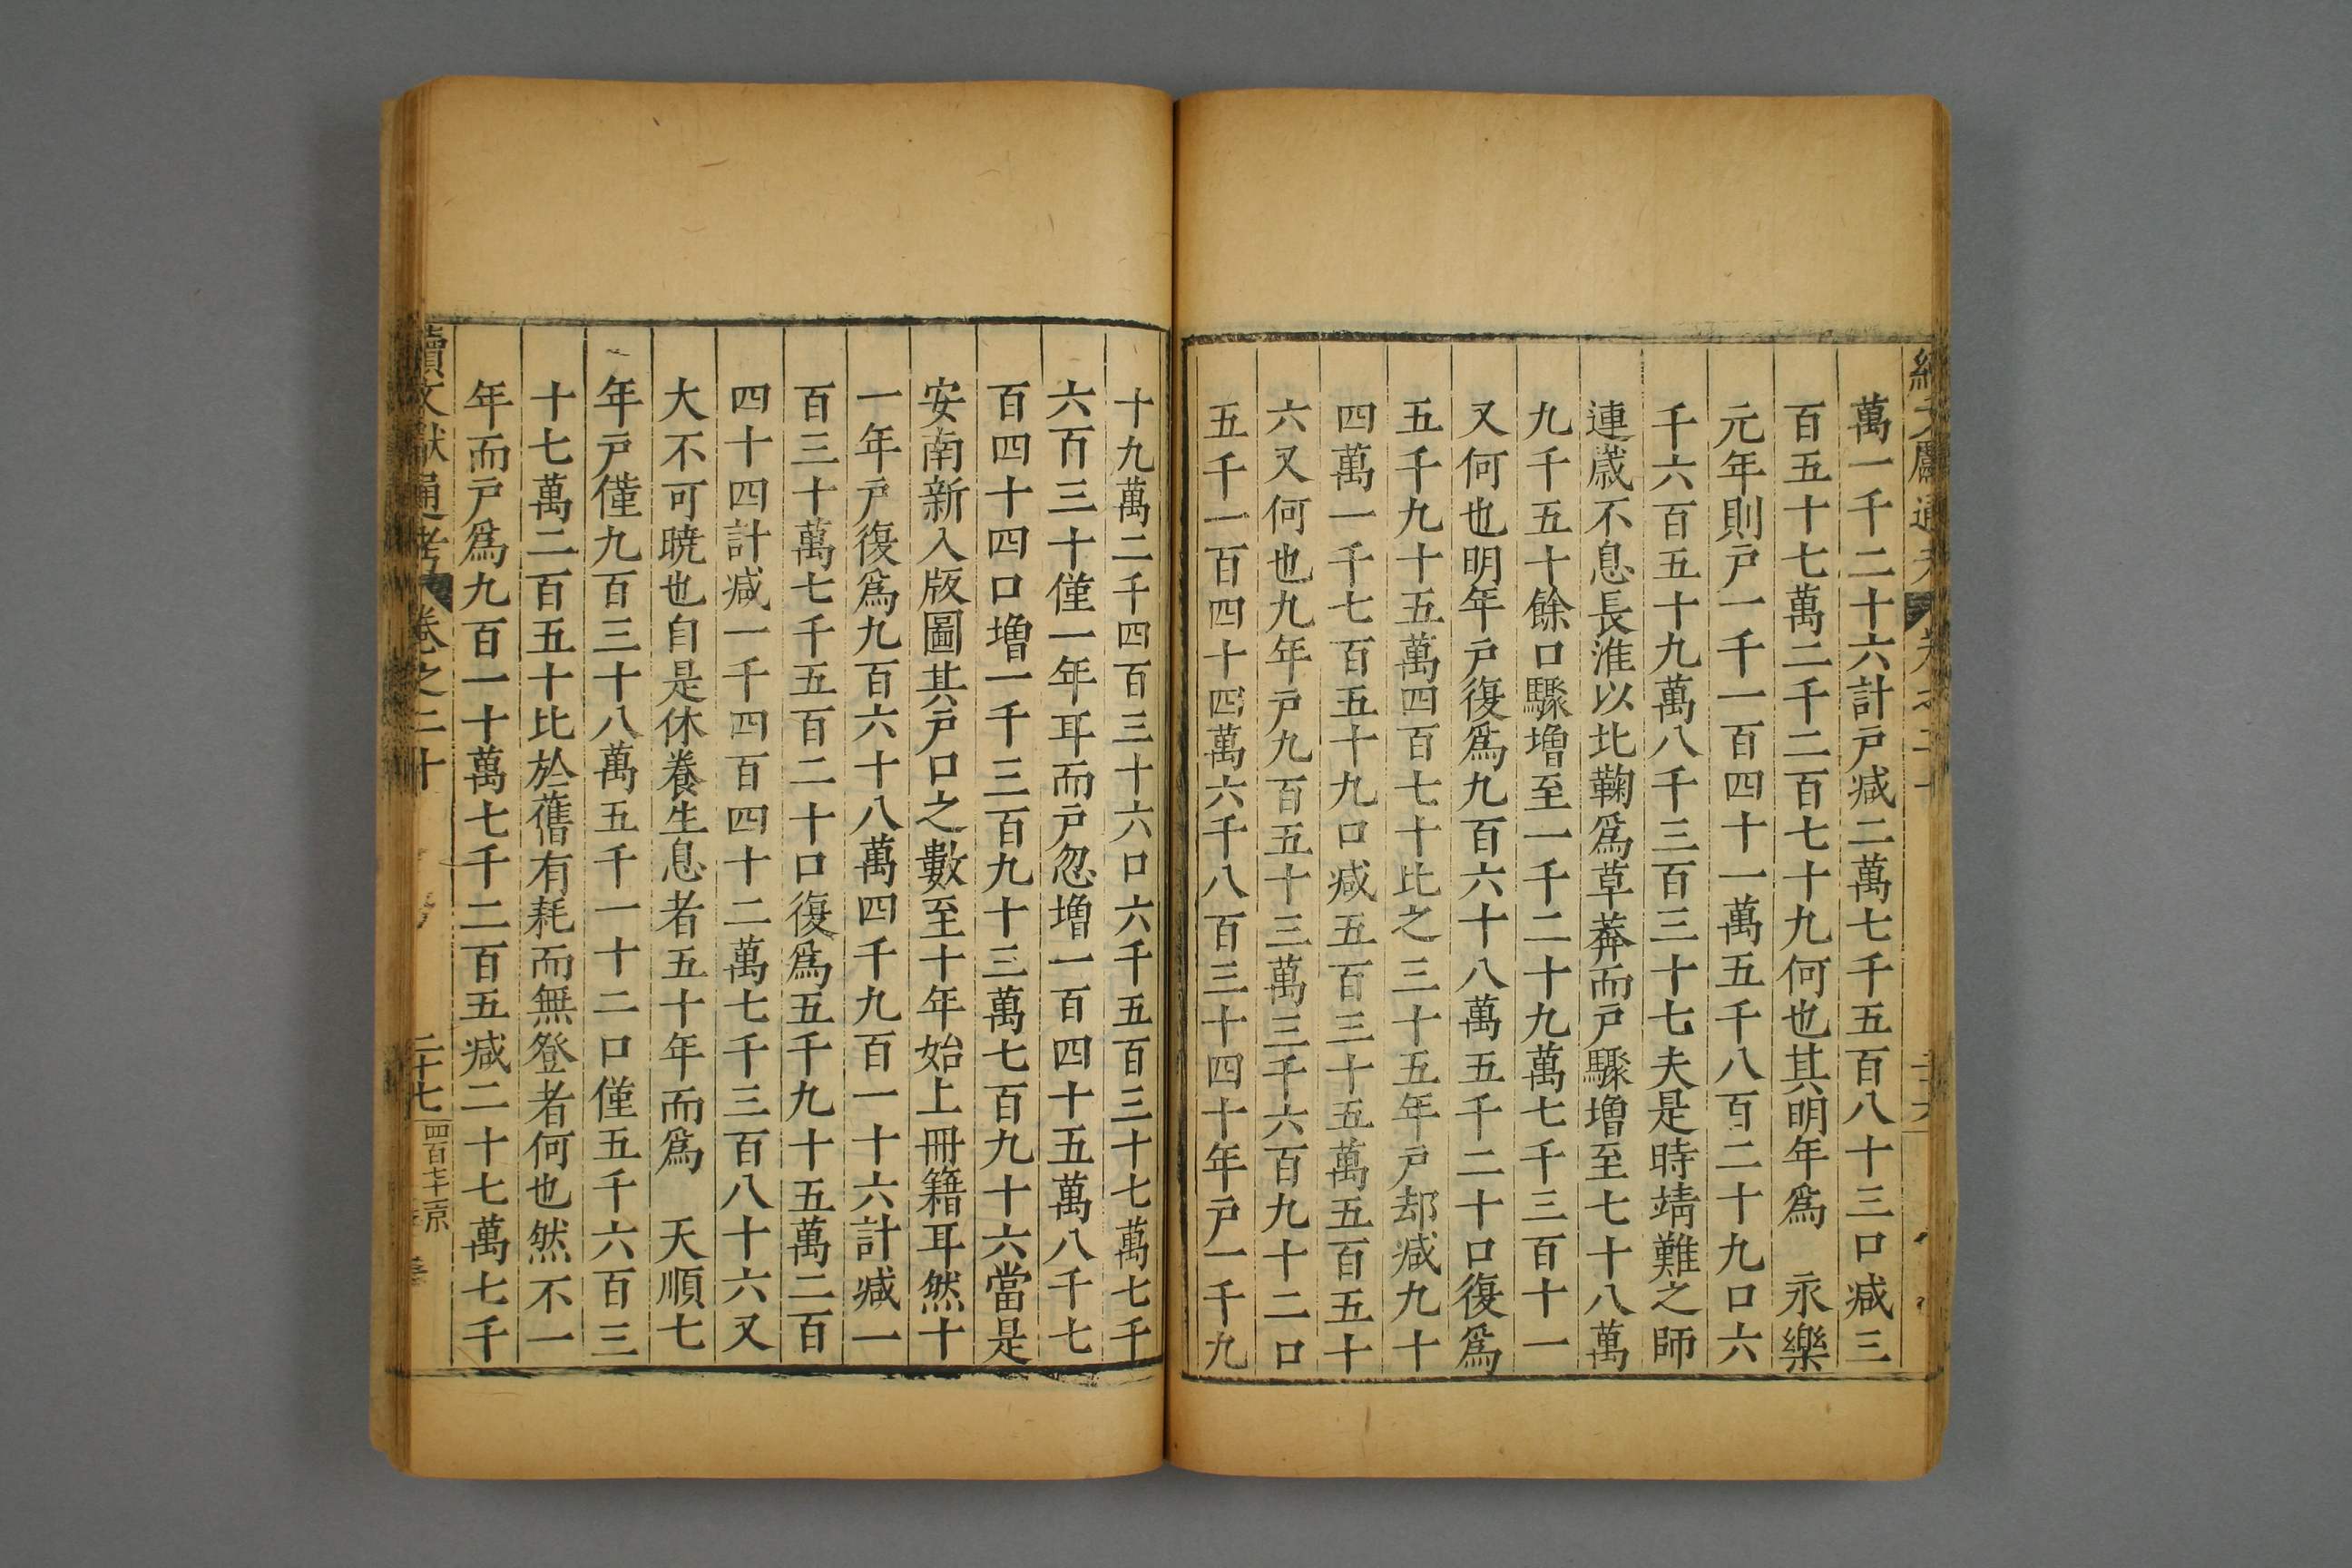 萬一千二十六計戸减二萬七千五百八十三口减三
百五十七萬二千二百七十九何也其明年爲 永樂
元年則戸一千一百四十一萬五千八百二十九口六
千六百五十九萬八千三百三十七夫是時靖難之師
連歲不息長淮以北鞠爲草莽而戸驟增至七十八萬
九千五十餘口驟增至一千二十九萬七千三百十一
又何也明年戸復爲九百六十八萬五千二十口復爲
五千九十五萬四百七十比之三十五年戸却减九十
四萬一千七百五十九口减五百三十五萬五百五十
六又何也九年戸九百五十三萬三千六百九十二口
五千一百四十四萬六千八百三十四十年戸一千九
十九萬二千四百三十六口六千五百三十七萬七千
六百三十僅一年耳而戸忽增一百四十五萬八千七
百四十四口增一千三百九十三萬七百九十六當是
安南新入版圖其戸口之數至十年始上冊籍耳然十
一年戸復爲九百六十八萬四千九百一十六計减一
百三十萬七千五百二十口復爲五千九十五萬二百
四十四計减一千四百四十二萬七千三百八十六又
大不可曉也自是休養生息者五十年而爲 天順七
年戸僅九百三十八萬五千一十二口僅五千六百三
十七萬二百五十比於舊有耗而無登者何也然不一
年而戸爲九百一十萬七千二百五减二十七萬七千
續文獻通考 卷之二十 二十七